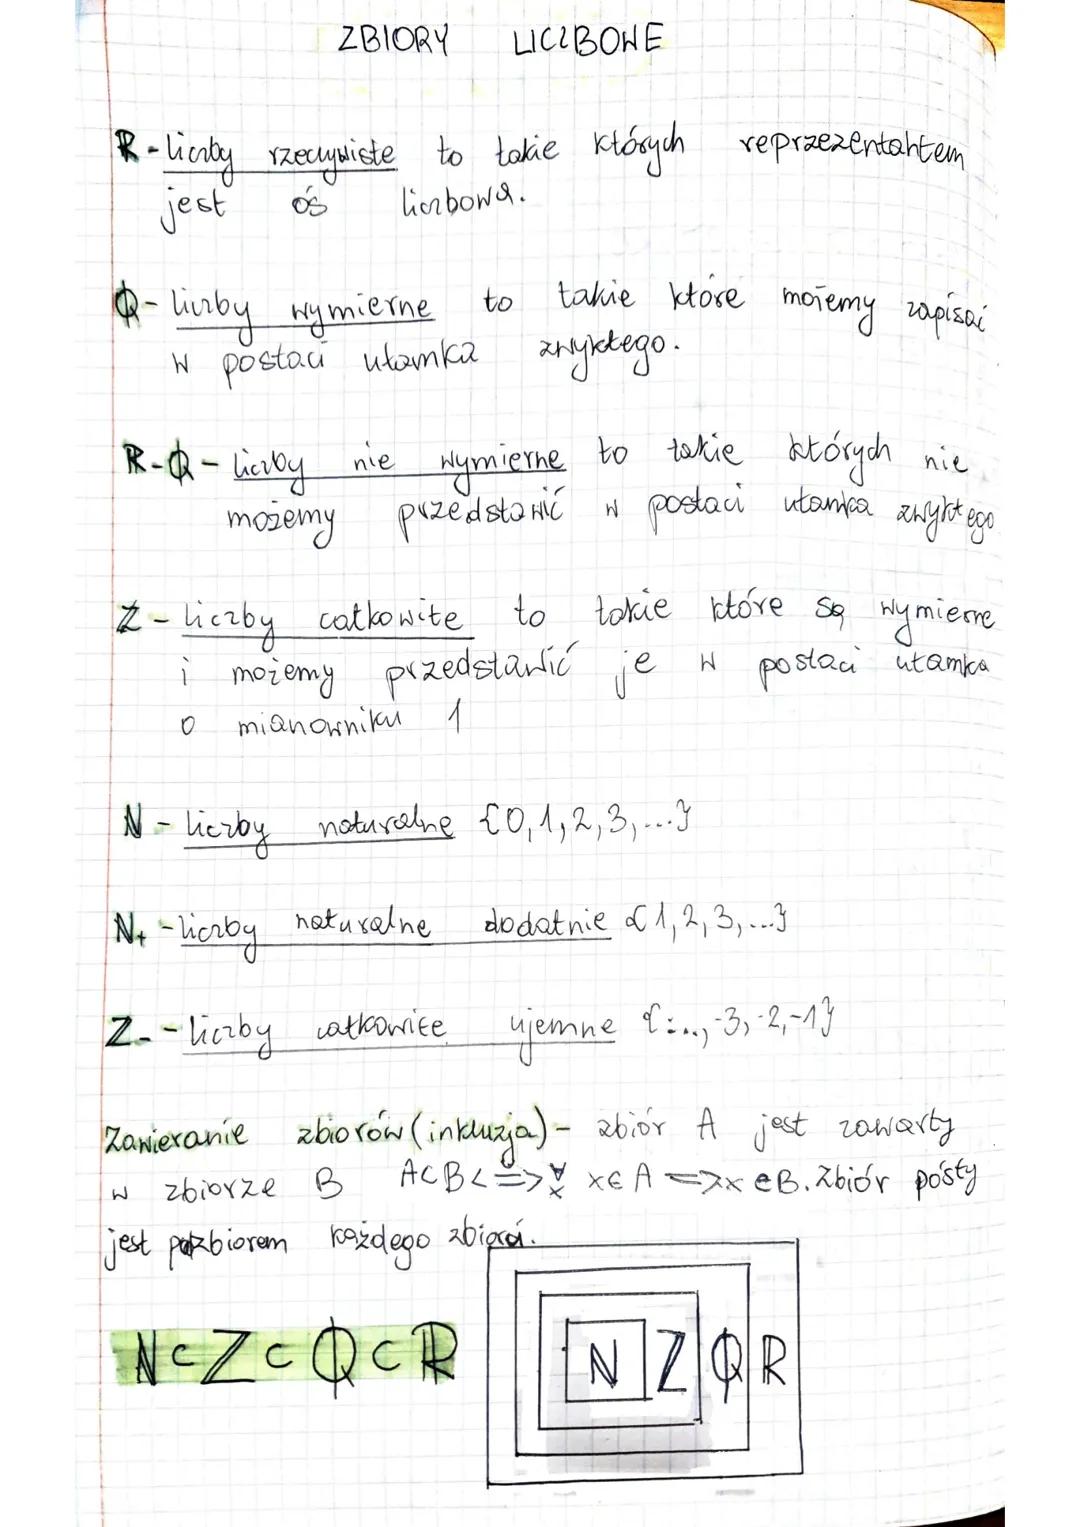 ZBIORY LICZBOWE
ℝ - liczby rzeczywiste to takie których reprzezentantem
jest oś liczbowa.
ℚ - liczby wymierne to takie które możemy zapisać
w postaci ułamka zwykłego.
ℝ-ℚ - liczby nie wymierne to takie których nie
możemy przedstawić w postaci ułamka zwykłego
ℤ - liczby całkowite to takie które są wymierne
i możemy przedstawić je w postaci ułamka
o mianowniku 1
ℕ - liczby naturalne {0,1,2,3,...}
ℕ₊ - liczby naturalne dodatnie {1,2,3,...}
ℤ₋ - liczby całkowite ujemne {...,-3,-2,-1}
Zawieranie zbiorów (inkluzja) - zbiór A jest zawarty
w zbiorze B A⊂B <=> ∀x x∈A => x∈B. Zbiór pósty
jest podzbiorem każdego zbiora.
ℕ⊂ℤ⊂ℚ⊂ℝ
ℕ ℤ ℚ ℝ